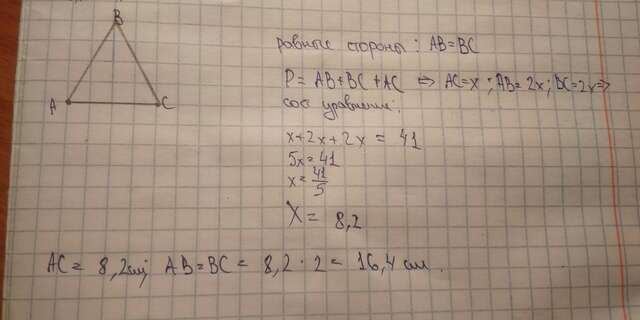 B
A
C
равные стороны: AB=BC
P= AB+BC+AC ⇔ AC=x; AB=2x; BC=2x ⇒
сос уравнение:
x+2x+2x = 41
5x=41
x= 41/5
X= 8,2
AC= 8,2см; AB=BC= 8,2 · 2= 16,4 см.